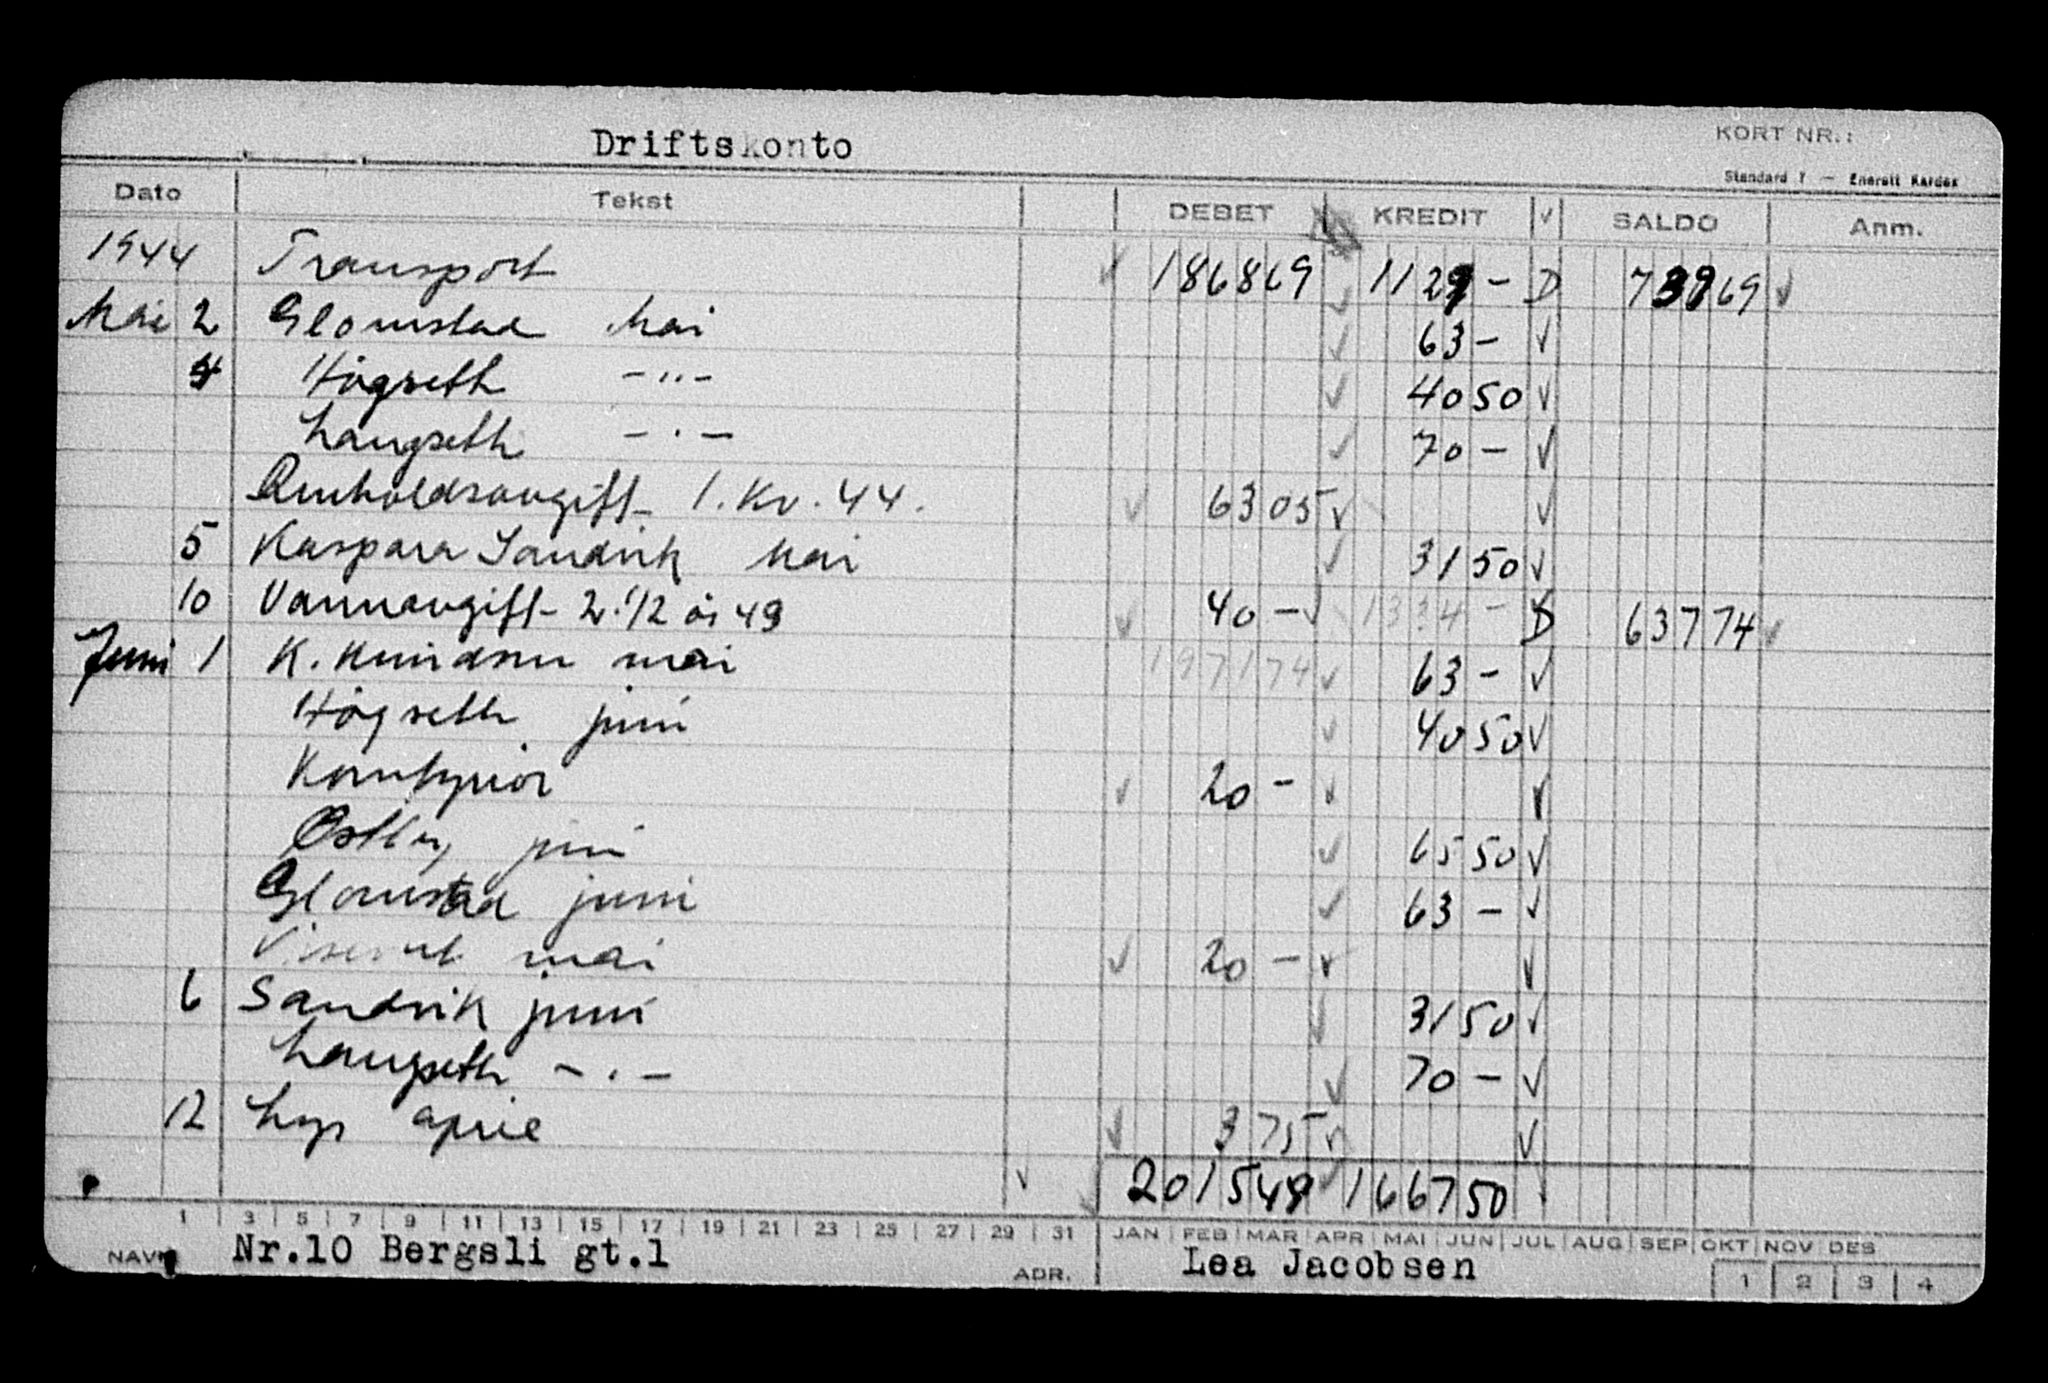 Driftskonto
KORT NR.:
Standard 7 — Enerett Kardex
Dato Tekst DEBET KREDIT V SALDO Anm.
1944 Transport 1868 69 1129 - D 739 69
Mai 2 Glomstad Mai 63 -
4 Högseth -"- 40 50
Langseth - " - 70 -
Renholdsavgift 1. Kv. 44. 63 05
5 Kaspara Sandvik Mai 31 50
10 Vannavgift 2. 1/2 år 43 40 - 1334 - D 637 74
Juni 1 K. Knudsen mai 1971 74 63 -
Högseth juni 40 50
20 -
Östby juni 65 50
Glomstad juni 63 -
mai 20 -
6 Sandvik juni 31 50
Langseth - " - 70 -
12 Lys april 3 75
2015 49 1667 50
1 3 5 7 9 11 13 15 17 19 21 23 25 27 29 31 JAN FEB MAR APR MAI JUN JUL AUG SEP OKT NOV DES
NAVN Nr.10 Bergsli gt.1 ADR. Lea Jacobsen 1 2 3 4